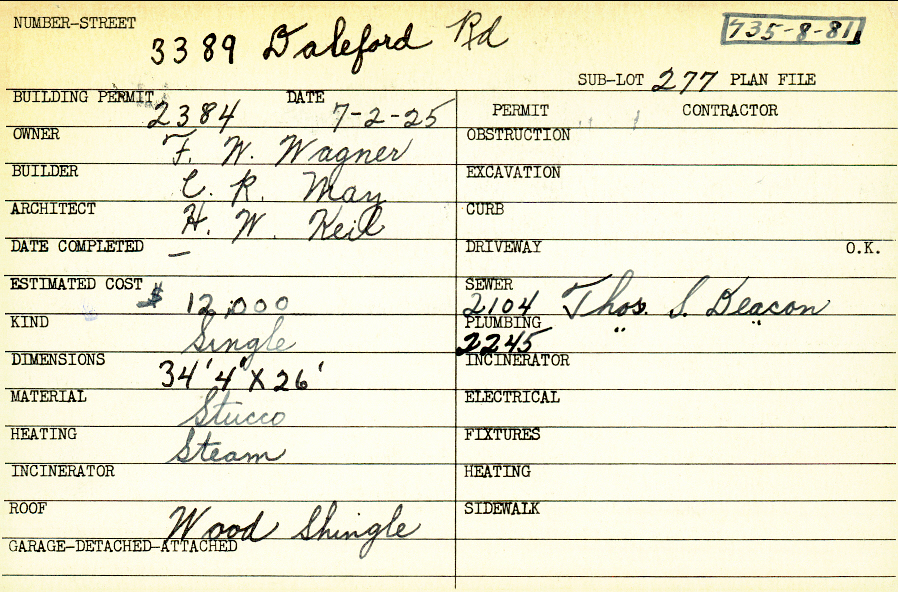 NUMBER-STREET 3389 Daleford Rd 735-8-81
SUB-LOT 277 PLAN FILE
BUILDING PERMIT 2384 DATE 7-2-25
PERMIT CONTRACTOR
OWNER F. W. Wagner
OBSTRUCTION
BUILDER C. R. May
EXCAVATION
ARCHITECT H. W. Keil
CURB
DATE COMPLETED —
DRIVEWAY O.K.
ESTIMATED COST $ 12,000
SEWER 2104 Thos. S. Deacon
KIND Single
PLUMBING 2245 " "
DIMENSIONS 34'4" X 26'
INCINERATOR
MATERIAL Stucco
ELECTRICAL
HEATING Steam
FIXTURES
INCINERATOR
HEATING
ROOF Wood Shingle
SIDEWALK
GARAGE-DETACHED-ATTACHED